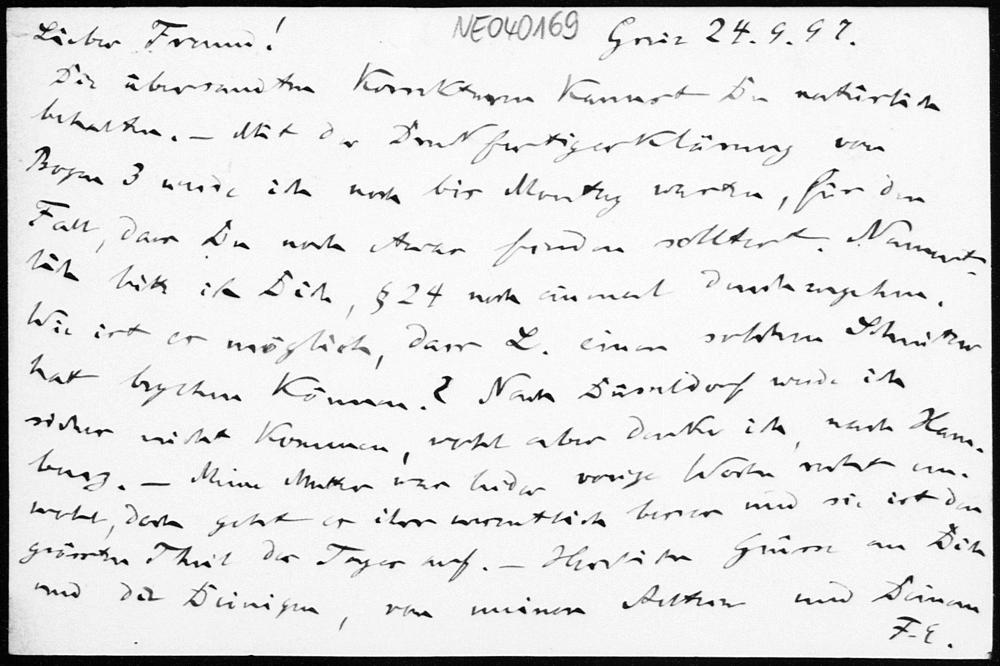 NE040169
Lieber Freund! Greiz 24.9.97.
Die übersandten Korrekturen kannst Du natürlich
behalten. — Mit der Druckfertigerklärung von
Bogen 3 werde ich noch bis Montag warten, für den
Fall, dass Du noch etwas finden solltest. Nament-
lich bitte ich Dich, § 24 noch einmal durchzugehen.
Wie ist es möglich, dass L. einen solchen Schnitzer
hat begehen können? Nach Düsseldorf werde ich
sicher nicht kommen, wohl aber denke ich, nach Ham-
burg. — Meine Mutter war leider vorige Woche recht un-
wohl, doch geht es ihr wesentlich besser und sie ist den
grössten Theil des Tages auf. — Herzlichen Grüsse an Dich
und die Deinigen, von meinen Eltern und Deinem
F. E.